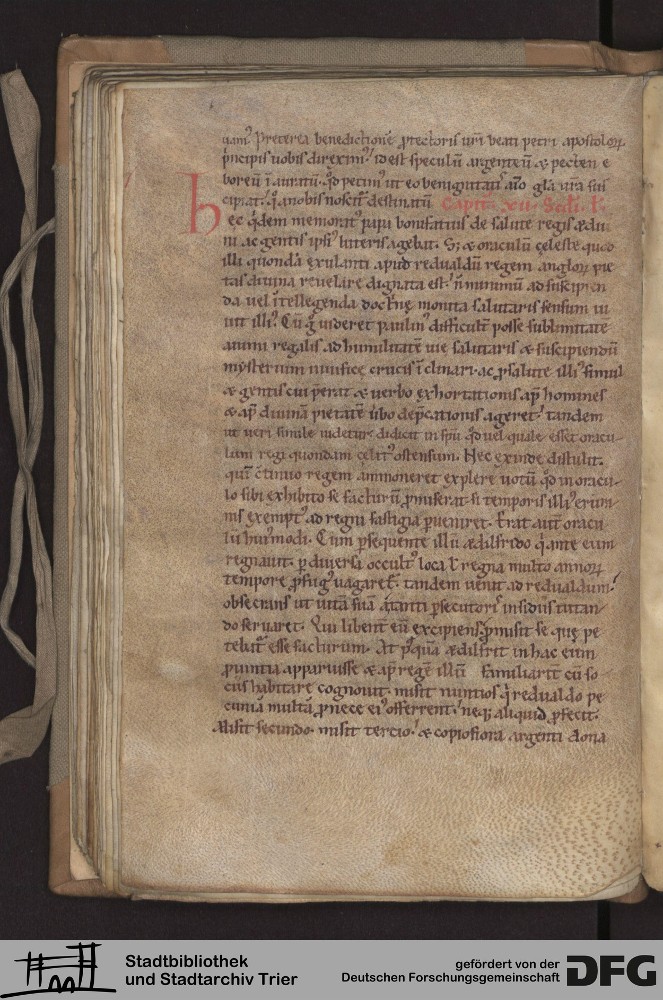 uam᷒. Preterea benedictionē ꝓtectoris ur̄i beati petri apostoloꝝ
principis uobis direxim᷒. id est speculū argenteū & pecten e
boreū īauratū. qd̄ petim᷒ ut eo benignitati gl̄a ur̄a sus
cipiat. qđ a nobis noscit᷒ destinatū. Capit̄. xii.
Hec q'dem memorat᷒ papa bonifatius de salute regis ædui
ni ac gentis ipsi᷒ litteris agebat. Sꝫ & oraculū cęleste quod
illi quondā exulanti apud redualdū regem angloꝝ pie
tas diuina reuelare dignata est. n̄ minimū ad suscipien
da uel ītellegenda doctrinę monita salutaris sensum iu
uit illi᷒. Cū g̊ uideret paulin᷒ difficult̄ posse sublimitatē
animi regalis ad humilitatē uie salutaris & suscipiendū
mysterium uiuifice crucis īclinari. ac ꝓ salute illi᷒ simul
& gentis cui p̄erat & uerbo exhortationis ap̄ homines
& ap̄ diuinā pietatē ūbo dep̄cationis ageret. tandem
ut ueri simile uidetur didicit in sp̄u qd̄ uel quale esset oracu-
lum regi quondam cęlit᷒ ostensum. Nec exinde distulit.
quin c̄tinuo regem ammoneret explere uotū qd̄ in oracu-
lo sibi exhibito se facturū ꝓmiserat. si temporis illi᷒ erum-
nis exempt᷒ ad regni fastigia ꝑueniret. Erat aut̄ oracu
lū hui᷒modi. Cum ꝑsequente illū ædilfrido q'ante eum
regnauit. ꝑ diuersa occult᷒ loca ł regna multo annoꝝ
tempore ꝓfug᷒ uagaret᷒. tandem uenit ad redualdum.
obsecrans ut uitā suā a tanti ꝑsecutoris insidiis tutan-
do seruaret. Qui libent̄ eū excipiens. ꝓmisit se quę pe
tebat᷒ esse facturum. At postquā ædilfrit in hac eum
ꝓuintia apparuisse & ap̄ regē illū familiarit̄ cū so-
ciis habitare cognouit. misit nuntios q' redualdo pe
cuniā multā ꝓ nece ei᷒ offerrent. neqꝫ aliquid ꝓfecit.
Misit secundo. misit tercio. & copiosiora argenti dona
Stadtbibliothek
und Stadtarchiv Trier
gefördert von der
Deutschen Forschungsgemeinschaft
DFG